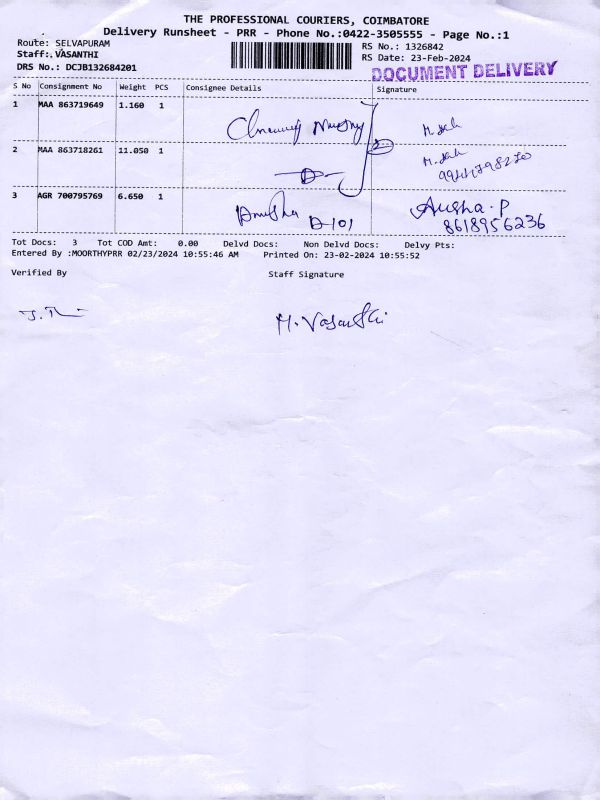 THE PROFESSIONAL COURIERS, COIMBATORE
Delivery Runsheet - PRR - Phone No.:0422-3505555 - Page No.:1
Route: SELVAPURAM
Staff: VASANTHI
DRS No.: DCJB132684201
RS No.: 1326842
RS Date: 23-Feb-2024
DOCUMENT DELIVERY
S No Consignment No Weight PCS Consignee Details Signature
1 MAA 863719649 1.160 1
2 MAA 863718261 11.050 1
3 AGR 700795769 6.650 1 Anusha D-101 Anusha.P
8618956236
Tot Docs: 3 Tot COD Amt: 0.00 Delvd Docs: Non Delvd Docs: Delvy Pts:
Entered By :MOORTHYPRR 02/23/2024 10:55:46 AM Printed On: 23-02-2024 10:55:52
Verified By Staff Signature
M. Vasanthi